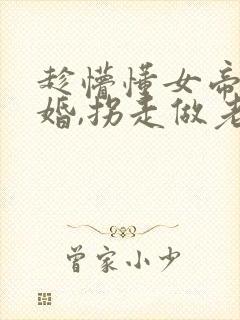 趁懵懂女帝
婚,拐走做老
曾家小少